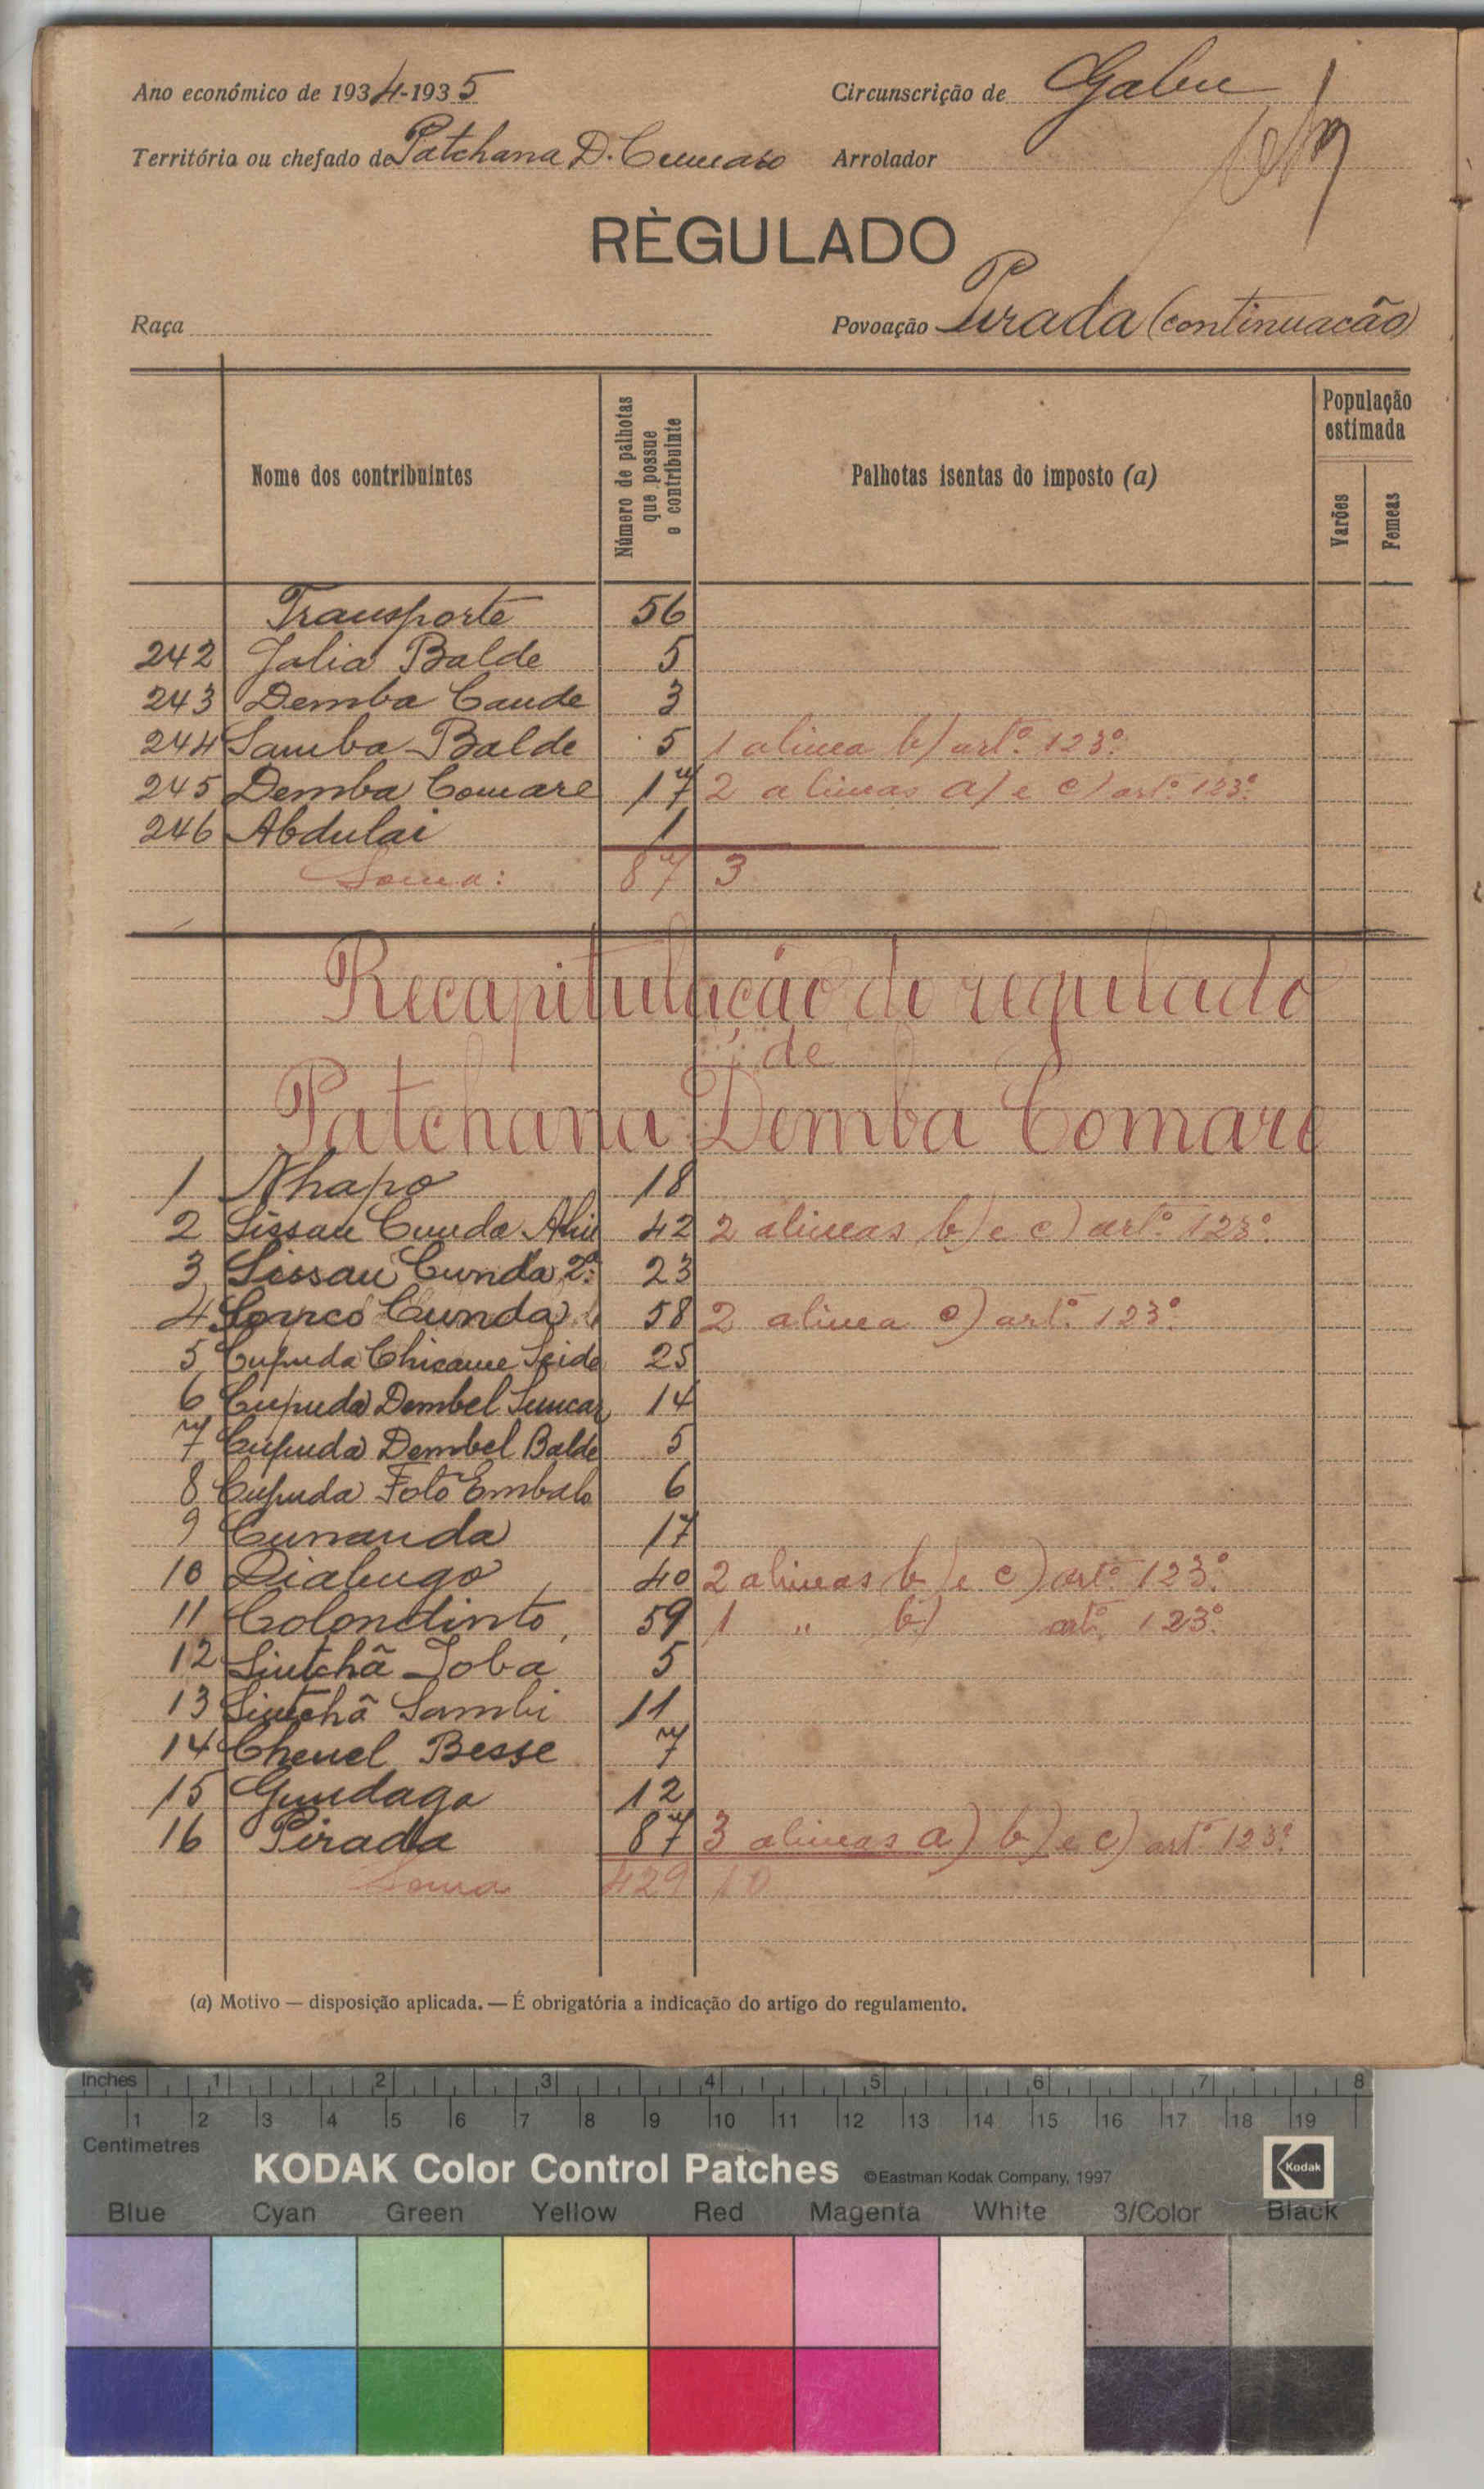 Ano económico de 1934-1935 Circunscrição de Gabu
Território ou chefado de Patchana D. Cumaro Arrolador
RÈGULADO
Raça Povoação Pirada (continuacão)
Nome dos contribuintes Número de palhotas que possue o contribuinte Palhotas isentas do imposto (a) População estimada Varões Femeas
Transporte 56
242 Jalia Balde 5
243 Demba Cande 3
244 Samba Balde 5 1 alinea b) artº. 123º.
245 Demba Comare 17 2 alineas a) e c) artº. 123º.
246 Abdulai 1
Soma: 87 3
Recapitulação do regulado
de
Patchana Demba Comare
1 Nhapo 18
2 Sissau Cunda Aliu 42 2 alineas b) e c) artº. 123º.
3 Sissau Cunda 2º. 23
4 Cunda 58 2 alinea c) artº. 123º.
5 Cupuda Chicame Seide 25
6 Cupuda Dembel 14
7 Cupuda Dembel Balde 5
8 Cupuda Foto Embalo 6
9 Cunanda 17
10 Diabugo 40 2 alineas b) e c) artº. 123º.
11 Colondinto, 59 1 " b) artº. 123º.
12 Sintchã Joba 5
13 Sintchã Sambi 11
14 Chenel Besse 7
15 Gundaga 12
16 Pirada 87 3 alineas a) b) e c) artº. 123º
Soma 429 10
(a) Motivo — disposição aplicada. — É obrigatória a indicação do artigo do regulamento.
Inches 1 2 3 4 5 6 7 8
1 2 3 4 5 6 7 8 9 10 11 12 13 14 15 16 17 18 19
Centimetres
KODAK Color Control Patches ©Eastman Kodak Company, 1997 Kodak
Blue Cyan Green Yellow Red Magenta White 3/Color Black